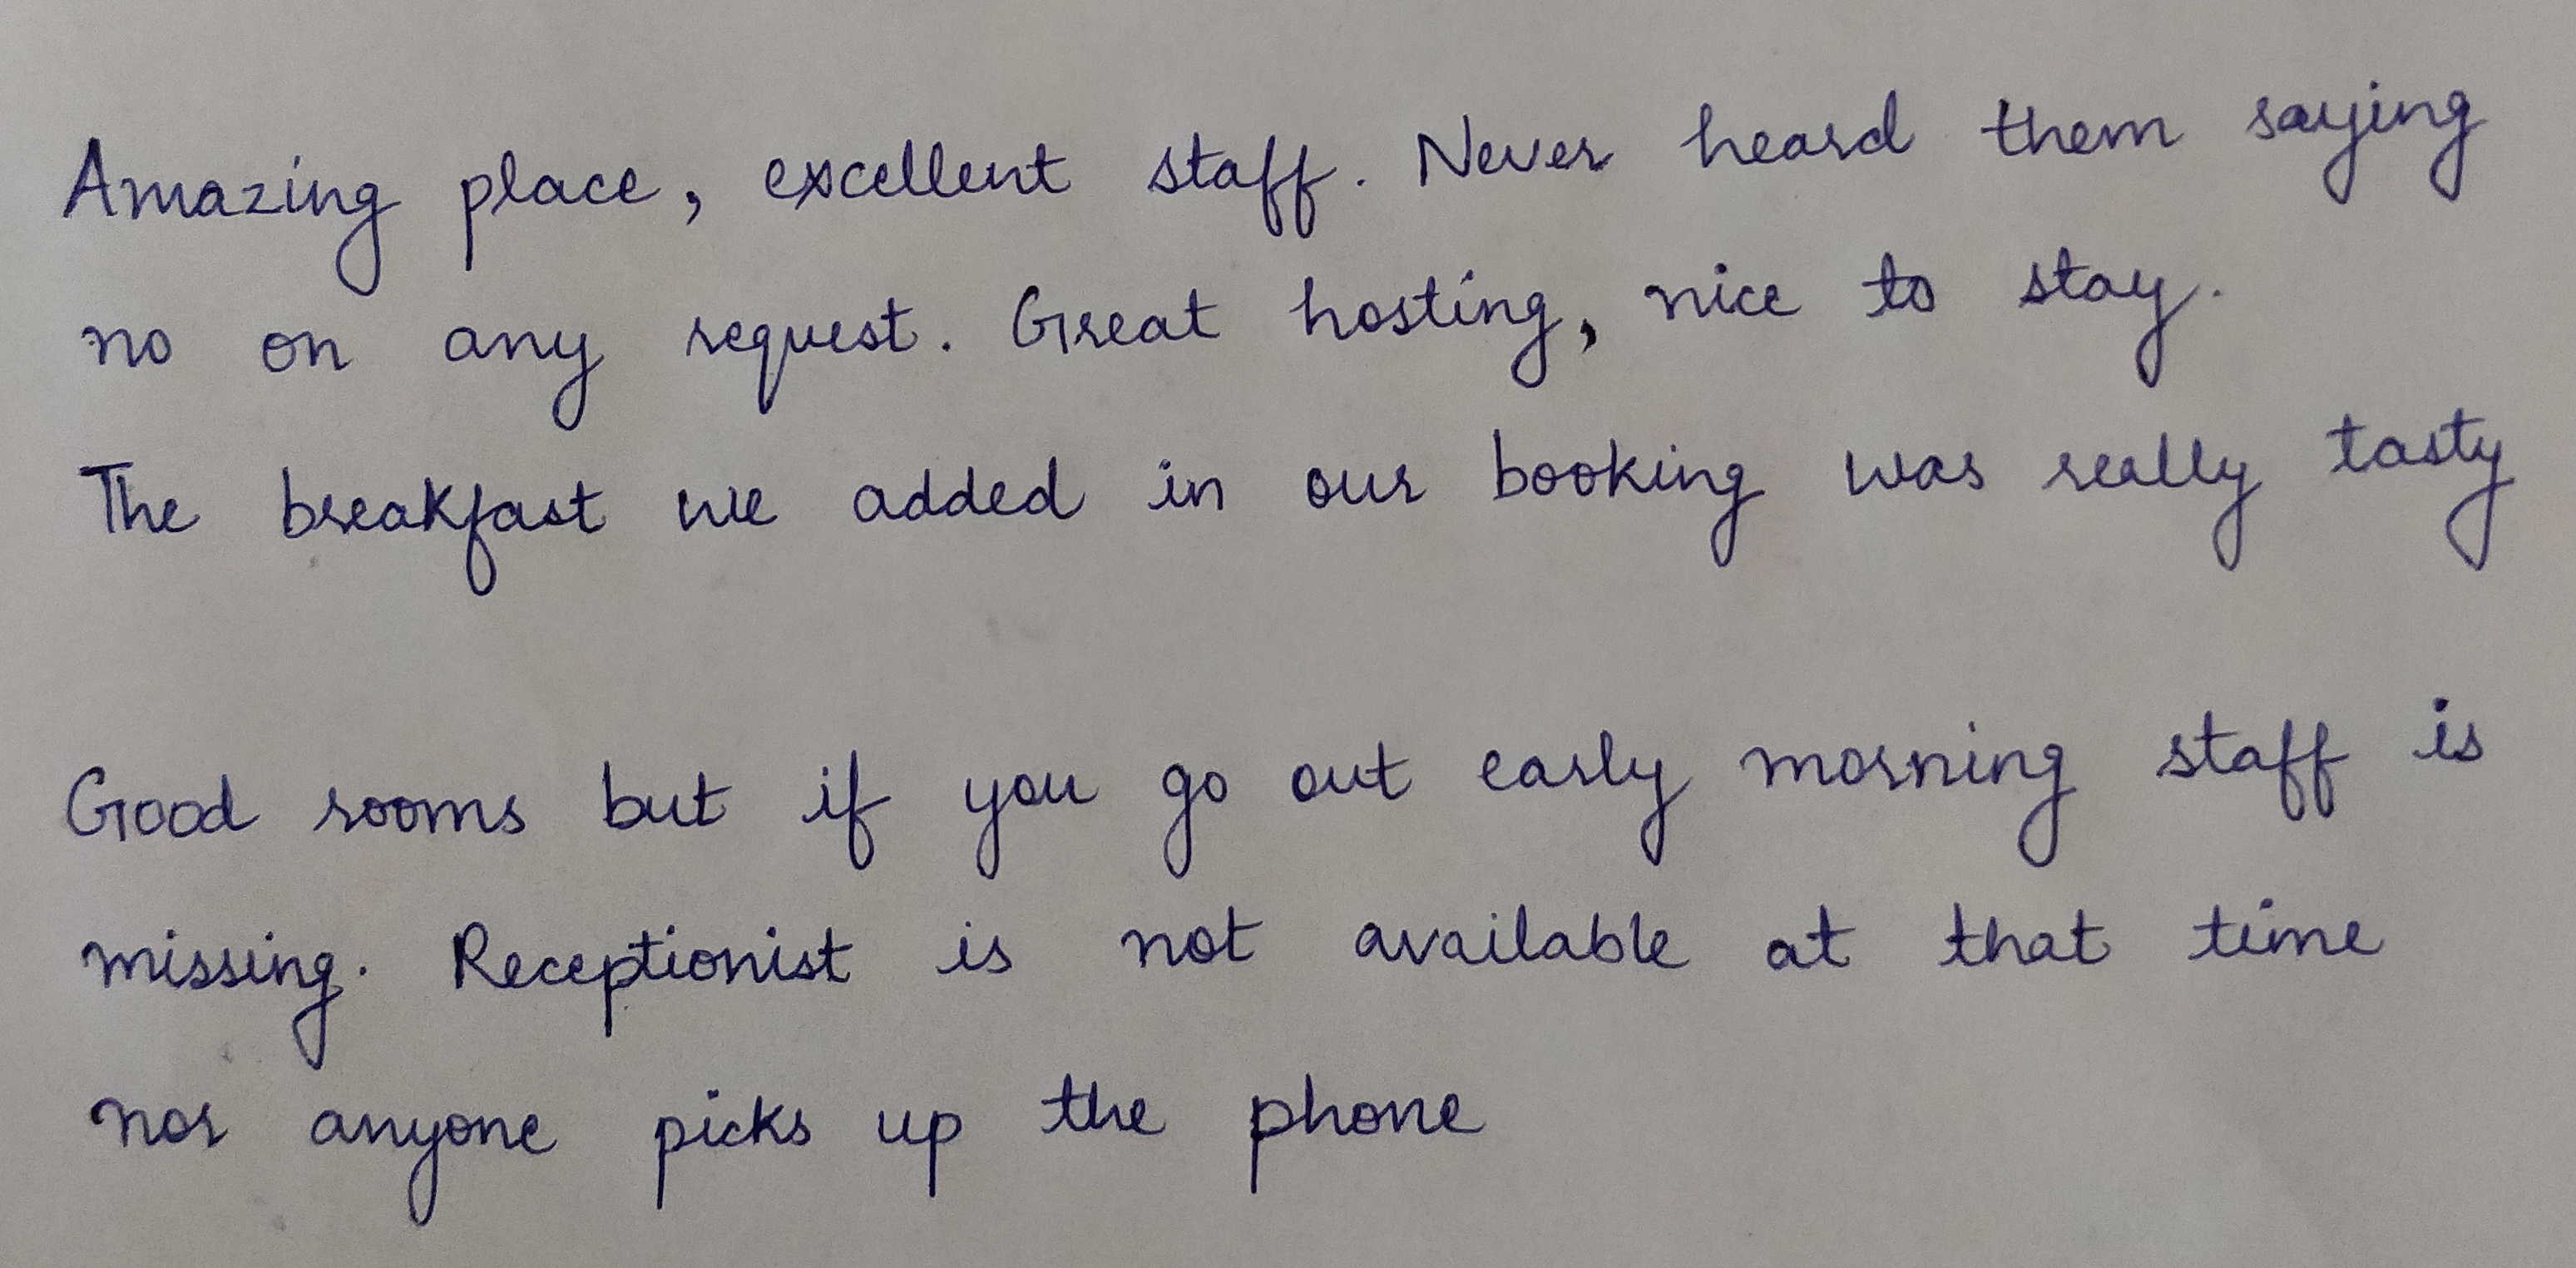 Amazing place, excellent staff. Never heard them saying
no on any request. Great hosting, nice to stay.
The breakfast we added in our booking was really tasty
Good rooms but if you go out early morning staff is
missing. Receptionist is not available at that time
nor anyone picks up the phone